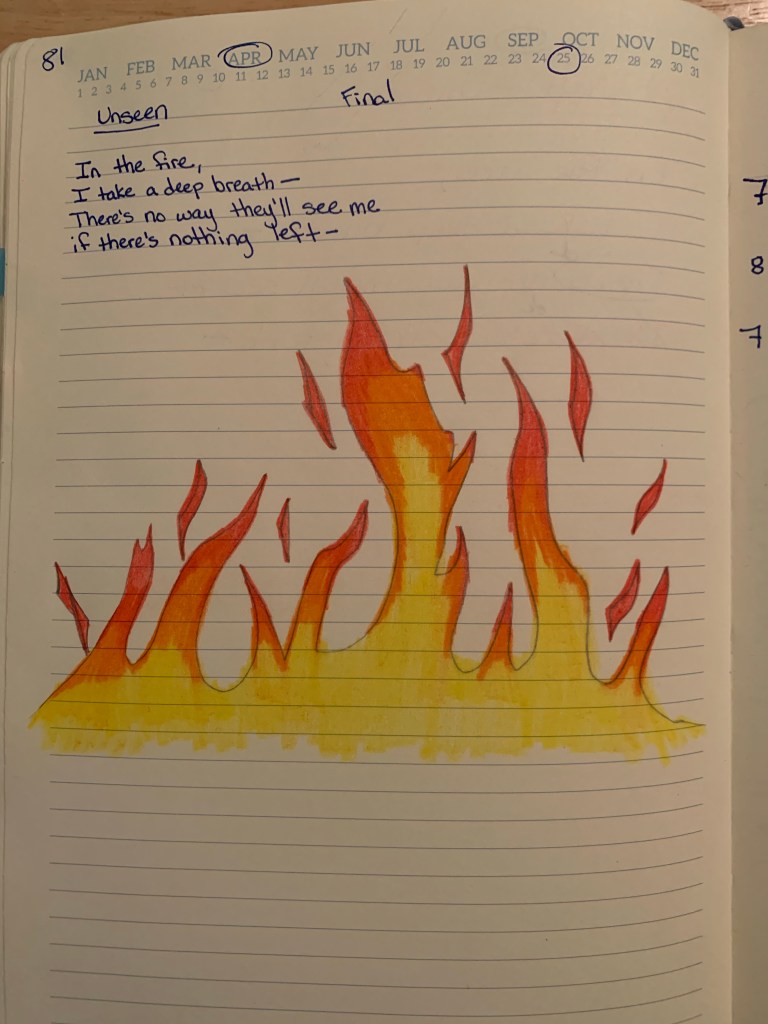 81
JAN FEB MAR APR MAY JUN JUL AUG SEP OCT NOV DEC
1 2 3 4 5 6 7 8 9 10 11 12 13 14 15 16 17 18 19 20 21 22 23 24 25 26 27 28 29 30 31
Unseen Final
In the fire,
I take a deep breath—
There's no way they'll see me
if there's nothing left—
7
8
7